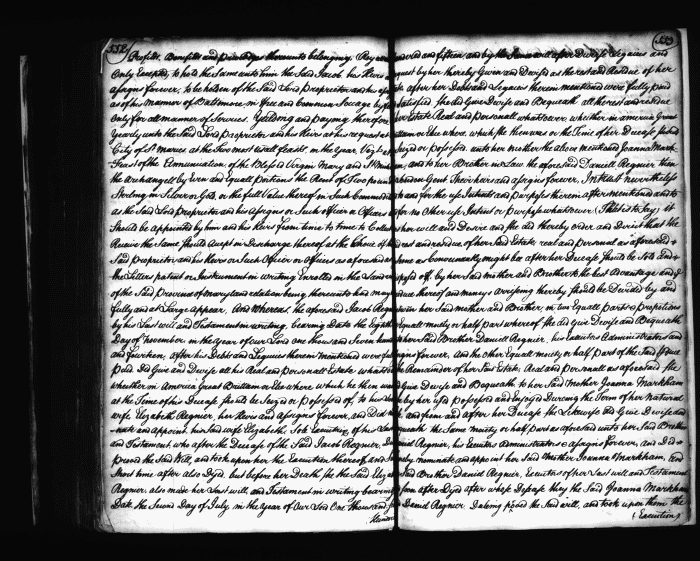 552
Profits, Benefits and priviledges thereunto belonging, Royal
Only Excepted, to hold the Same unto him the Said Jacob his Heirs
assigns forever, to be holden of the Said Lord Proprietor and his
as of his Mannor of Baltimore in free and Common Soccage by
Only for all manner of Services. Yielding and paying therefor
Yearly unto the Said Lord Proprietor and his Heirs at his
City of St Maries at the Two most usuall feasts in the Year,
Feast of the Annunciation of the Blessed Virgin Mary and St
the archangel by Even and Equall portions the Rent of Two
Sterling in Silver or Gold, or the full Value thereof in Such
as the Said Lord Proprietor and his assigns or Such officer or Officers
Should be appointed by him and his Heirs from time to time to
Receive the Same Should accept in Discharge thereof at the Choice of
Said Proprietor and his Heirs or Such Officer or Officers as aforesaid
the Letters patent or Instrument in writing Enrolled in the
of the Said Province of Maryland relation being thereunto had may
fully and at Large appear, And Whereas the aforesaid Jacob
by his Last will and Testament in writing, bearing Date the Eighth
Day of November in the Year of our Lord one thous and Seven
and fourteen, after his Debts and Legacies therein mentioned were
paid Did Give and Devise all his Real and personall Estate
whether in America Great Brittain or Else where, which he then
at the Time of his Decease should be Seized or Possessed of, to his
wife Elizabeth Regnier, her Heirs and assigns forever, and Did
-nate and appoint his said wife Elizabeth Sole Executrix of his
and Testament, who after the Decease of the Said Jacob Regnier,
prooved the Said Will, and took upon her the Execution thereof, and
Short time after also Dyed, but before her Death She the Said
Regnier, also made her Last will, and Testament in writing bearing
Date the Second Day of July, in the Year of Our Lord One thousand
553
and fifteen and by the Same will after Divers Legacies and
by her thereby Given and Devised as the rest and Residue of her
after her Debts and Legacies therein mentioned were fully paid
Satisfied, She did Give Devise and Bequeath all the rest and residue
her Estate Real and Personall whatsoever, whether in america Great
or Else where, which She then was or the Time of her Decease should
Seized or possessed, unto her mother the above mentioned Joanna
and to her Brother in Law the aforesaid Daniell Regnier then
Gent. Their heirs and assigns forever, In Trust nevertheless
and for the uses Intents and purposes therein after mentioned and to
for no other use Intent or purpose whatsoever, (That is to Say) it
her will and Desire and She did thereby order and Direct that the
rest and residue of her said Estate real and personal as aforesaid
Soon as Conveniently might be after her Decease should be Sold and
of, by her Said mother and Brother to the best Advantage and
thereof and moneys arrising thereby should be Devided by and
her Said mother and Brother, in two Equall parts or proportions
Equall moiety or half part whereof She did Give Devise and Bequeath
her Said Brother Daniel Regnier, his Executors Administrators and
assigns forever, And the other Equall moiety or half part of the Said
the Remainder of her Said Estate Real and Personall as aforesaid She
Give Devise and Bequeath to her Said Mother Joanna Markham
by her to be possessed and Enjoyed During the Term of her Natural
and from and after her Decease She Likewise did Give Devise and
the Same moiety or half part as aforesaid unto her Said Brother
Daniel Regnier, his Executors administrators & assigns forever, and Did
nominate and appoint her Said Mother Joanna Markham, and
Said Brother Daniel Regnier, Executors of her Last will and Testament
Soon after Dyed after whose Decease they the Said Joanna Markham
Daniel Regnier, the Said will, and took upon them the
Execution